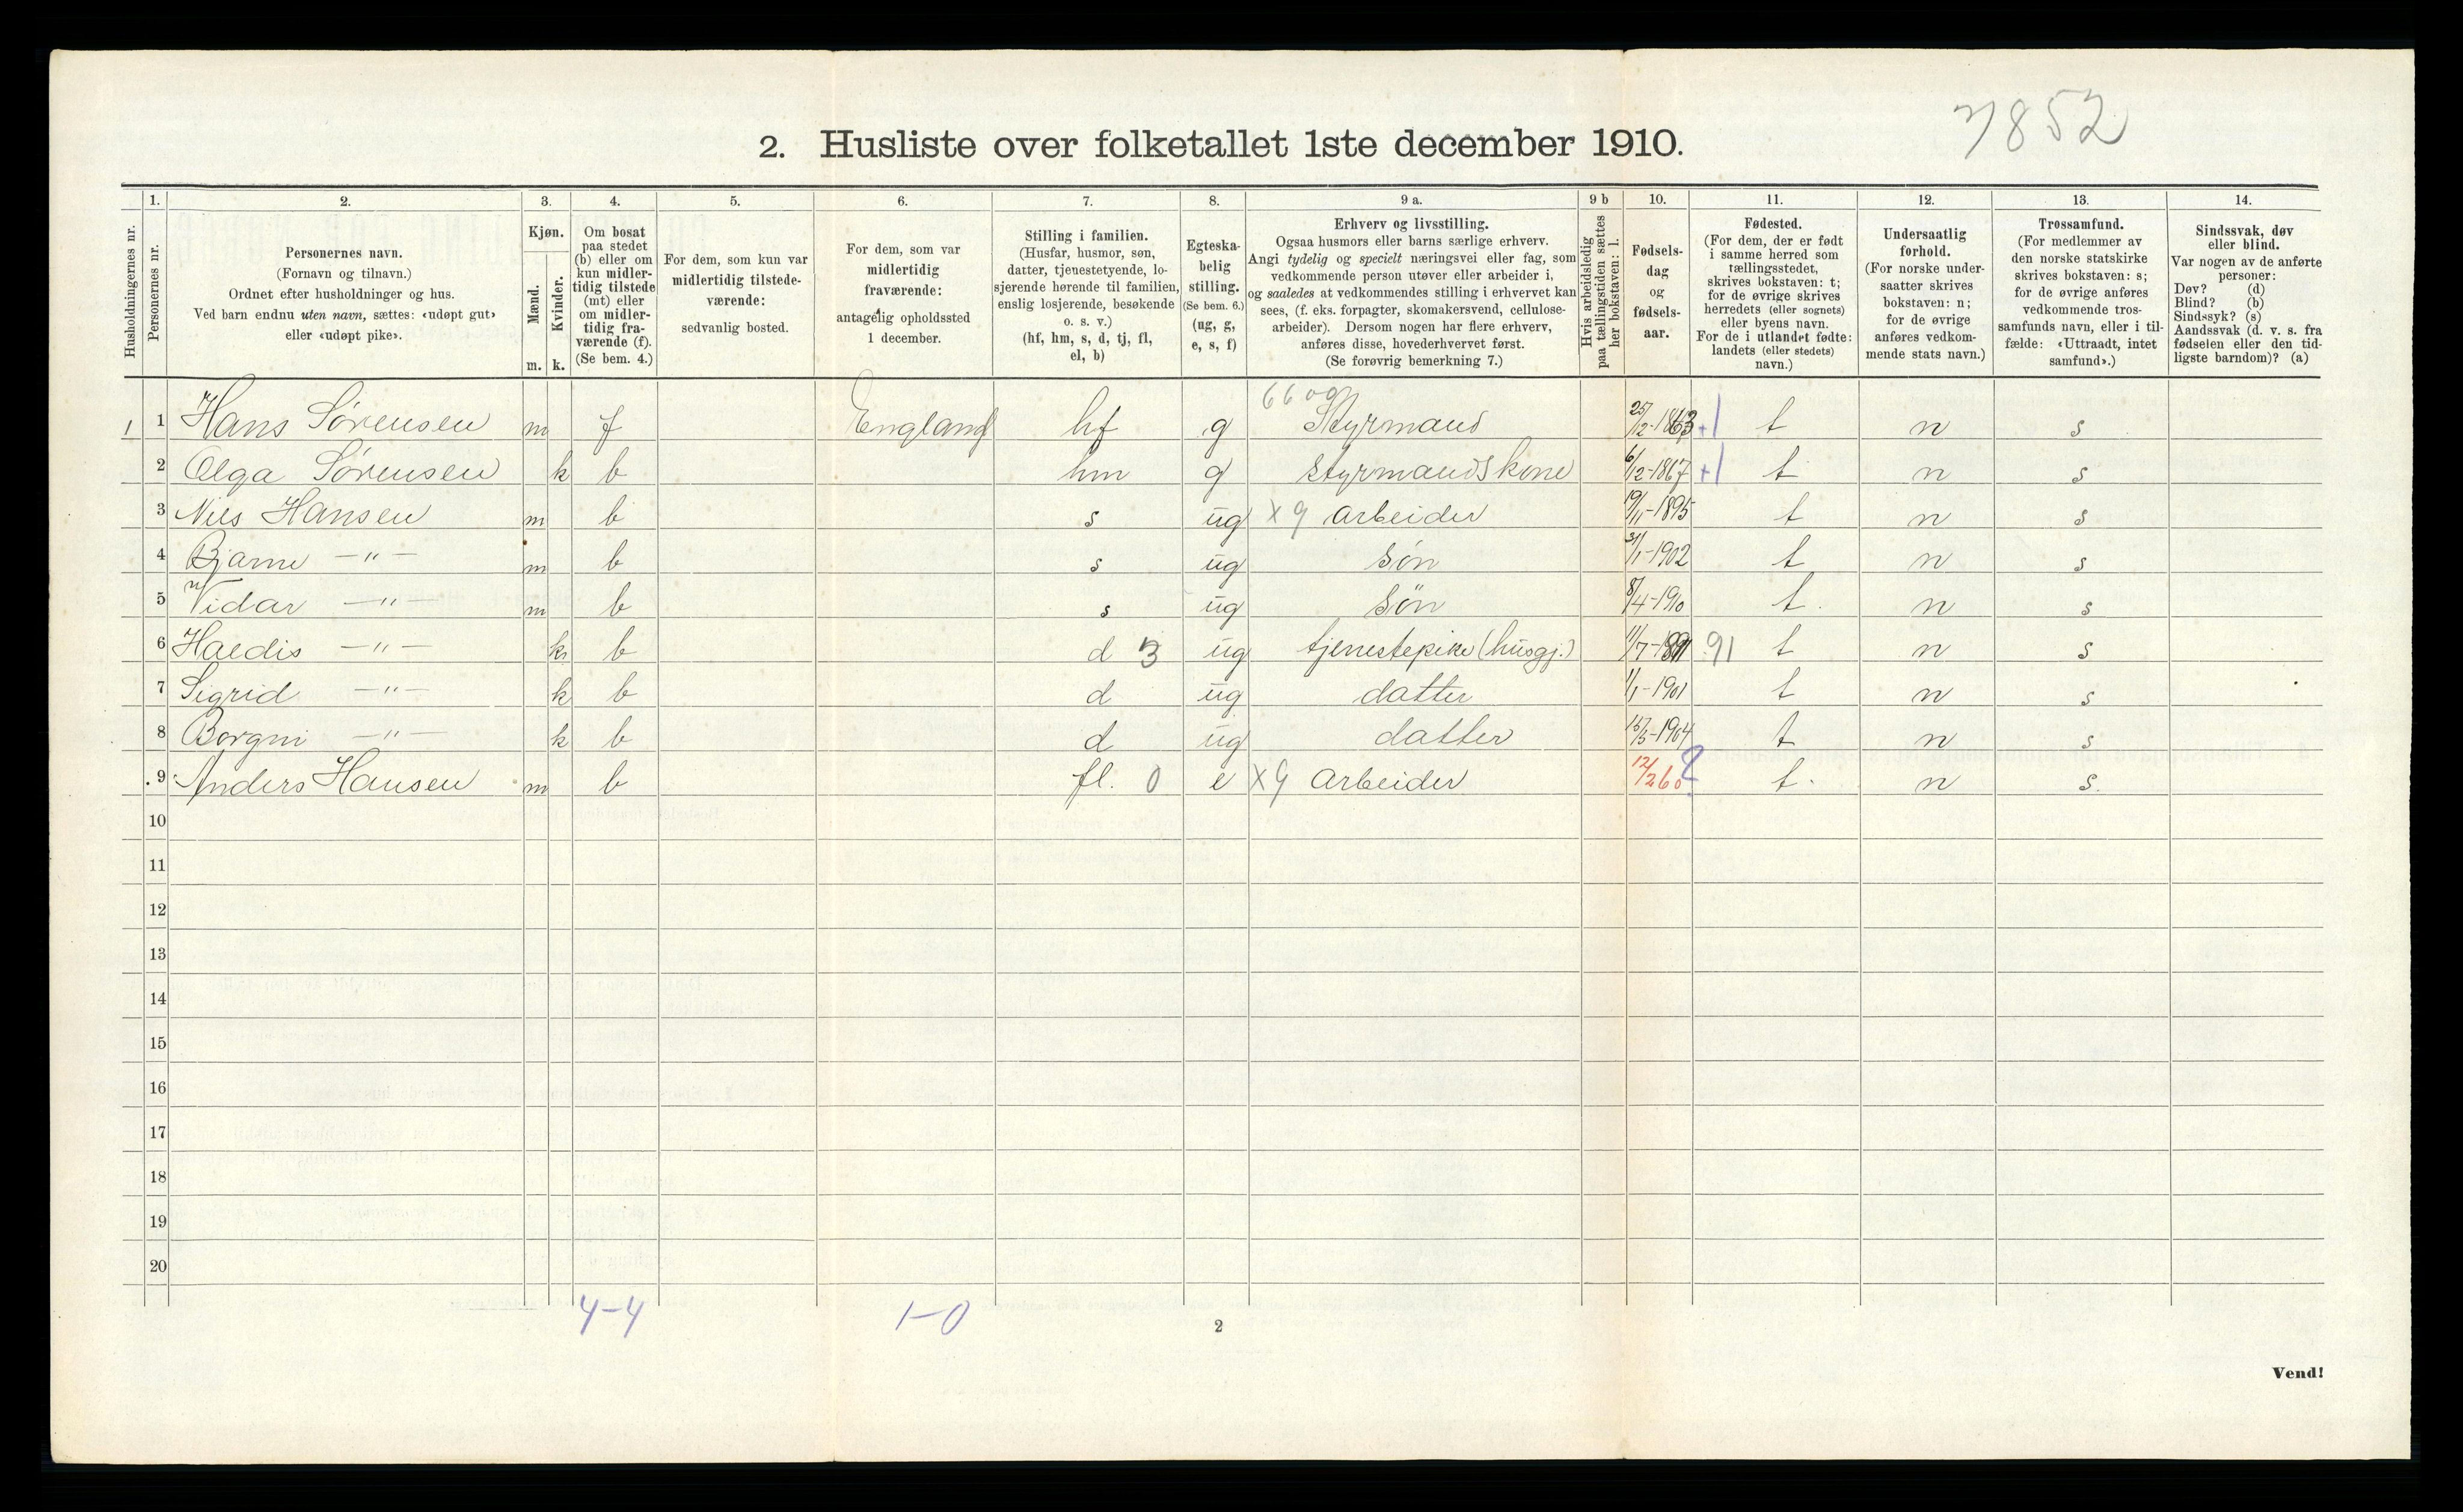 7852
2. Husliste over folketallet 1ste december 1910.
1. 2. 3. 4. 5. 6. 7. 8. 9 a. 9 b 10. 11. 12. 13. 14.
Husholdningernes nr.
Personernes nr.
Personernes navn.
(Fornavn og tilnavn.)
Ordnet efter husholdninger og hus.
Ved barn endnu uten navn, sættes: «udøpt gut»
eller «udøpt pike».
Kjøn.
Mænd.
Kvinder.
m. k.
Om bosat
paa stedet
(b) eller om
kun midler-
tidig tilstede
(mt) eller
om midler-
tidig fra-
værende (f).
(Se bem. 4.)
For dem, som kun var
midlertidig tilstede-
værende:
sedvanlig bosted.
For dem, som var
midlertidig
fraværende:
antagelig opholdssted
1 december.
Stilling i familien.
(Husfar, husmor, søn,
datter, tjenestetyende, lo-
sjerende hørende til familien,
enslig losjerende, besøkende
o. s. v.)
(hf, hm, s, d, tj, fl,
el, b)
Egteska-
belig
stilling.
(Se bem. 6.)
(ug, g,
e, s, f)
Erhverv og livsstilling.
Ogsaa husmors eller barns særlige erhverv.
Angi tydelig og specielt næringsvei eller fag, som
vedkommende person utøver eller arbeider i,
og saaledes at vedkommendes stilling i erhvervet kan
sees, (f. eks. forpagter, skomakersvend, cellulose-
arbeider). Dersom nogen har flere erhverv,
anføres disse, hovederhvervet først.
(Se forøvrig bemerkning 7.)
Hvis arbeidsledig
paa tællingstiden sættes
her bokstaven: l.
Fødsels-
dag
og
fødsels-
aar.
Fødested.
(For dem, der er født
i samme herred som
tællingsstedet,
skrives bokstaven: t;
for de øvrige skrives
herredets (eller sognets)
eller byens navn.
For de i utlandet fødte:
landets (eller stedets)
navn.)
Undersaatlig
forhold.
(For norske under-
saatter skrives
bokstaven: n;
for de øvrige
anføres vedkom-
mende stats navn.)
Trossamfund.
(For medlemmer av
den norske statskirke
skrives bokstaven: s;
for de øvrige anføres
vedkommende tros-
samfunds navn, eller i til-
fælde: «Uttraadt, intet
samfund».)
Sindssvak, døv
eller blind.
Var nogen av de anførte
personer:
Døv? (d)
Blind? (b)
Sindssyk? (s)
Aandssvak (d. v. s. fra
fødselen eller den tid-
ligste barndom)? (a)
1 1 Hans Sørensen m f England hf g Styrmand 25/12-1863 +1 t n s
2 Olga Sørensen k b hm g styrmandskone 6/12-1867 +1 t n s
3 Nils Hansen m b s ug x9 arbeider 19/11-1895 t n s
4 Bjarne -"- m b s ug søn 31/1-1902 t n s
5 Vidar -"- m b s ug søn 8/4-1910 t. n s
6 Haldis -"- k b d 3 ug tjenestepike (husgj.) 11/7-1891 91 t n s
7 Sigrid -"- k b d ug datter 1/1-1901 t n s
8 Borgni -"- k b d ug datter 15/3-1904 t n s
9 Anders Hansen m b fl. 0 e x9 arbeider 12/2 60 ? t. n s.
10
11
12
13
14
15
16
17
18
19
20
4-4 1-0
2
Vend!